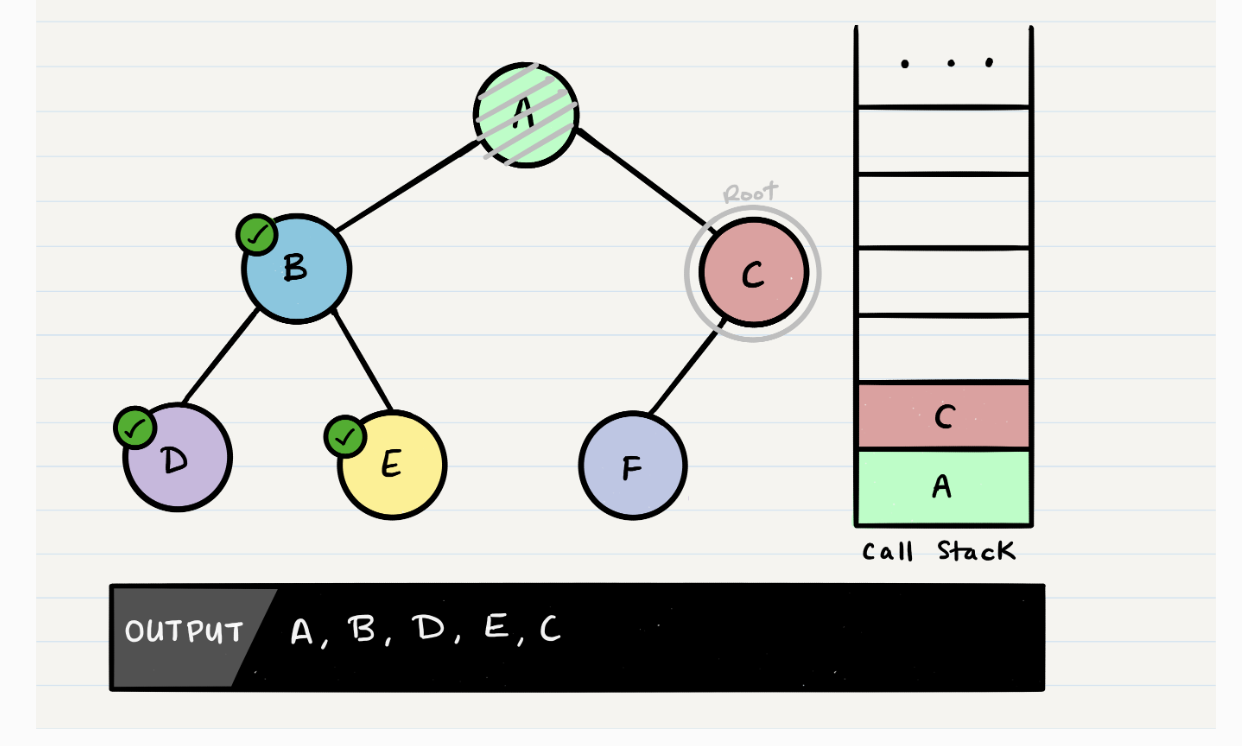 A
Root
B
C
D
E
F
C
A
Call Stack
OUTPUT A, B, D, E, C